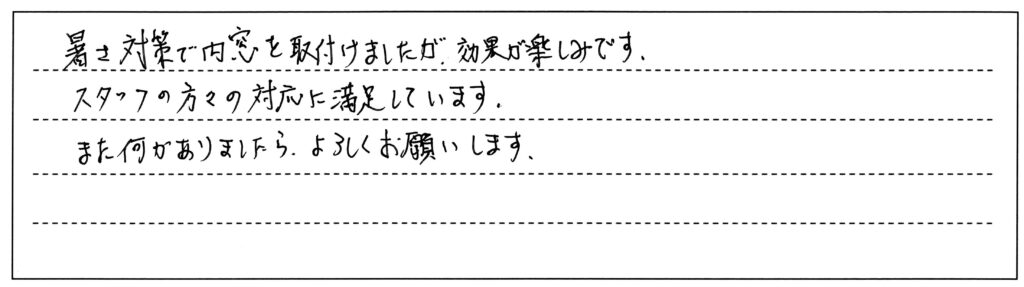 暑さ対策で内窓を取付けましたが、効果が楽しみです。
スタッフの方々の対応に満足しています。
また何かありましたら、よろしくお願いします。